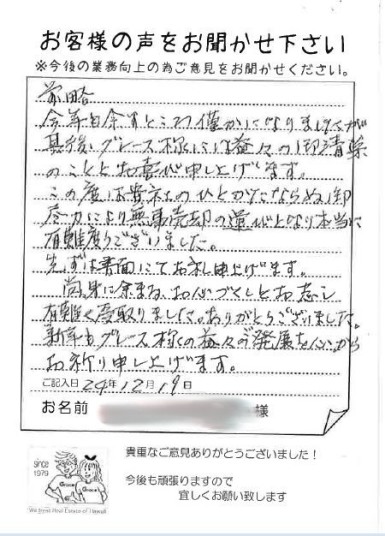 お客様の声をお聞かせ下さい
※今後の業務向上の為ご意見をお聞かせください。
前略
今年も余すところ僅かになりましたが
其後グレース様には益々の御清栄
のこととお喜び申し上げます。
この度は貴社のひとかたならぬ御
尽力により無事売却の運びとなり本当に
有難うございました。
先ずは書面にてお礼申上げます。
尚、身に余まる、お心づくしとお志を
有難く受取りました。ありがとうございました。
新年もグレース様の益々の発展を心から
お祈り申し上げます。
ご記入日 24年12月19日
お名前 様
since
1979
Grace
貴重なご意見ありがとうございました!
今後も頑張りますので
宜しくお願い致します
Real Estate of Hawaii